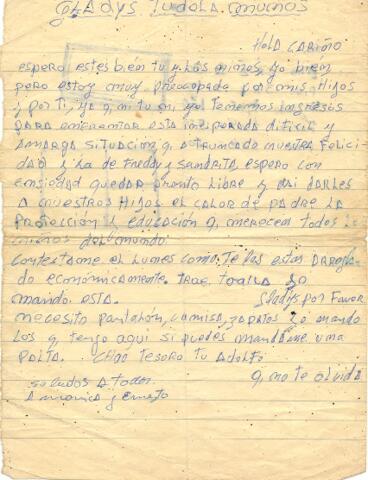 GLADYS TUDELA
HOLA CARIÑO
espero estes bien tu y los niños, yo bien
pero estoy muy preocupado por mis Hijos
y por ti, ya q, ni tu ni, yo tenemos ingresos
para enfrentar esta inesperada dificil y
amarga situacion q, a truncado nuestra Felici
DAD y la de Freddy y Sandrita espero con
ansiedad quedar pronto libre y asi darles
a nuestros Hijos el calor de padre la
protección y educación q, merecem todos
niños del mundo.
Contestame el lunes como te las estas arregla
do económicamente. trae toalla yo
mando esta. Gladys por Favor
necesito pantalon, camisa, zapatos yo mando
los q, tengo aqui si puedes mandame una
. Chao Tesoro tu Adolfo
q, no te olvida
saludos a todos.
a monica y ernesto